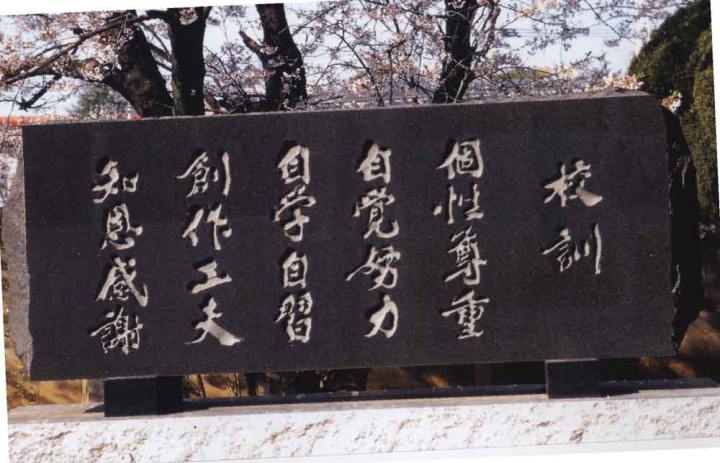 校訓
個性尊重
自覚努力
自学自習
創作工夫
知恩感謝